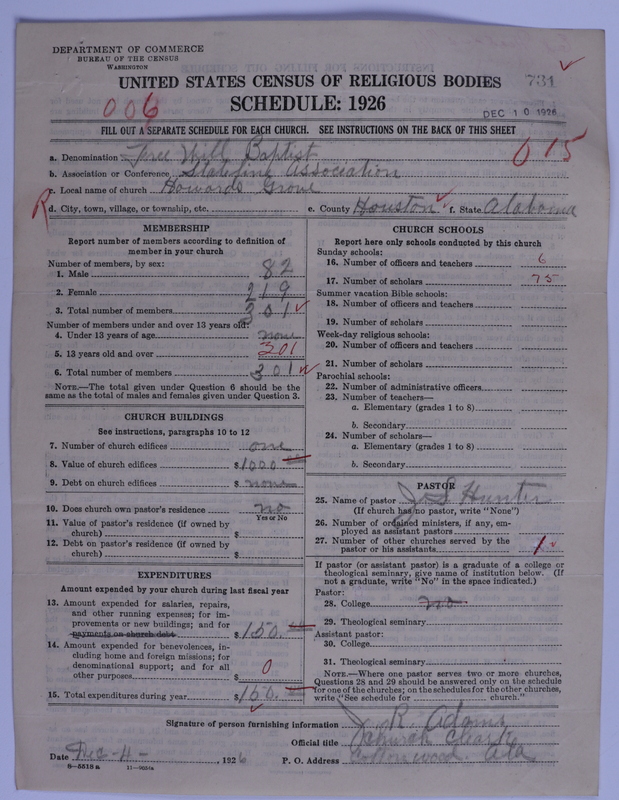 DEPARTMENT OF COMMERCE
BUREAU OF THE CENSUS
WASHINGTON
UNITED STATES CENSUS OF RELIGIOUS BODIES
731
SCHEDULE: 1926
006
DEC 10 1926
FILL OUT A SEPARATE SCHEDULE FOR EACH CHURCH. SEE INSTRUCTIONS ON THE BACK OF THIS SHEET
015
a. Denomination Free Will Baptist
b. Association or Conference State line Association
c. Local name of church Howards Grove
R d. City, town, village, or township, etc. e. County Houston f. State Alabama
MEMBERSHIP
Report number of members according to definition of
member in your church
Number of members, by sex:
1. Male 82
2. Female 219
3. Total number of members 301
Number of members under and over 13 years old:
4. Under 13 years of age none
5. 13 years old and over 301
6. Total number of members 301
NOTE.—The total given under Question 6 should be the
same as the total of males and females given under Question 3.
CHURCH BUILDINGS
See instructions, paragraphs 10 to 12
7. Number of church edifices one
8. Value of church edifices $1000
9. Debt on church edifices $ none
10. Does church own pastor's residence no
Yes or No
11. Value of pastor's residence (if owned by
church) $
12. Debt on pastor's residence (if owned by
church) $
EXPENDITURES
Amount expended by your church during last fiscal year
13. Amount expended for salaries, repairs,
and other running expenses; for im-
provements or new buildings; and for
payments on church debt $150.
14. Amount expended for benevolences, in-
cluding home and foreign missions; for
denominational support; and for all
other purposes $ 0
15. Total expenditures during year $150.
CHURCH SCHOOLS
Report here only schools conducted by this church
Sunday schools:
16. Number of officers and teachers 6
17. Number of scholars 75
Summer vacation Bible schools:
18. Number of officers and teachers
19. Number of scholars
Week-day religious schools:
20. Number of officers and teachers
21. Number of scholars
Parochial schools:
22. Number of administrative officers
23. Number of teachers—
a. Elementary (grades 1 to 8)
b. Secondary
24. Number of scholars—
a. Elementary (grades 1 to 8)
b. Secondary
PASTOR
25. Name of pastor J. S. Hunter
(If church has no pastor, write "None")
26. Number of ordained ministers, if any, em-
ployed as assistant pastors
27. Number of other churches served by the
pastor or his assistants 1
If pastor (or assistant pastor) is a graduate of a college or
theological seminary, give name of institution below. (If
not a graduate, write "No" in the space indicated.)
Pastor:
28. College no
29. Theological seminary
Assistant pastor:
30. College
31. Theological seminary
NOTE.—Where one pastor serves two or more churches,
Questions 28 and 29 should be answered only on the schedule
for one of the churches; on the schedules for the other churches,
write "See schedule for church."
Signature of person furnishing information J. R. Adams
Official title Church Clerk
Date Dec-4-, 1926 P. O. Address Cottonwood. Ala
8-5515a 11-9051a